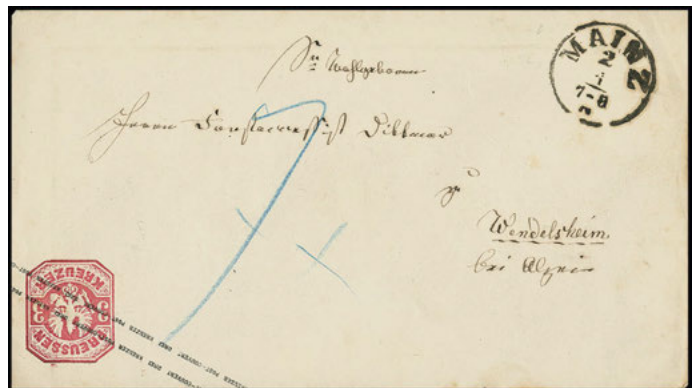 MAINZ
2
1
7-8
N
Sr Wohlgeboren
Herrn Dittmar
zu
Wendelsheim
bei Alzei
PREUSSEN
3 3
KREUZER
POST-COUVERT DREI KREUZER POST-COUVERT DREI KREUZER